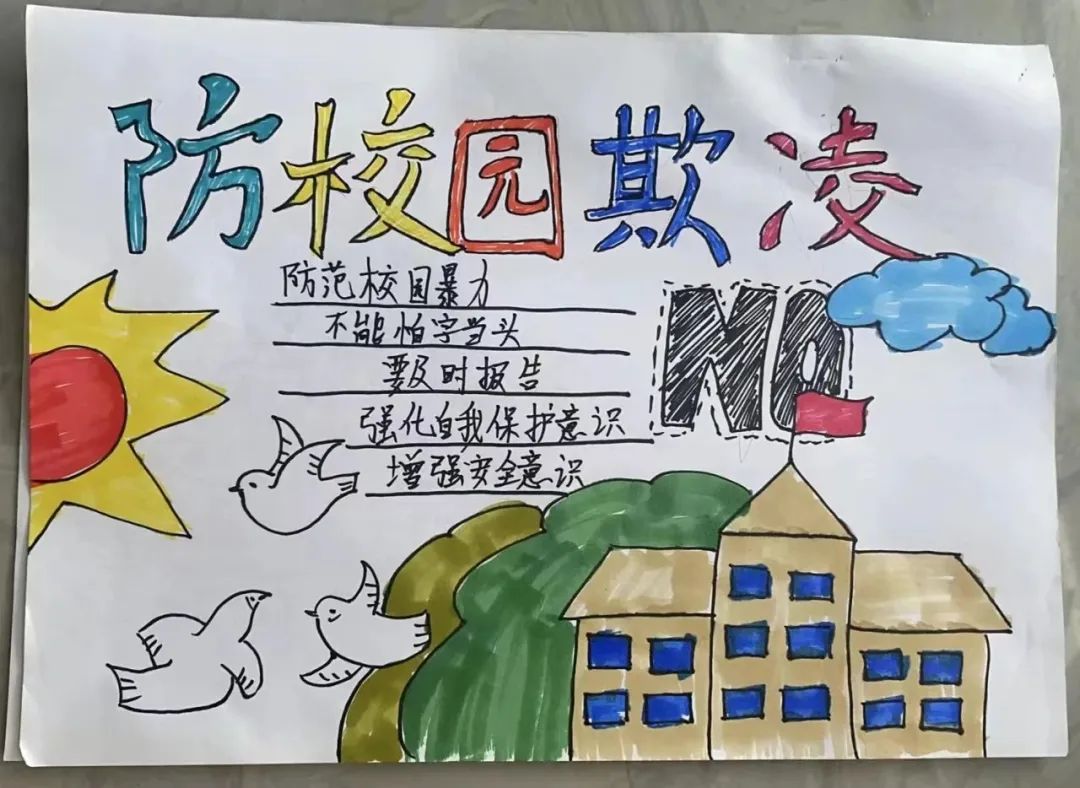 防校园欺凌
防范校园暴力
不能怕字当头
要及时报告
强化自我保护意识
增强安全意识
NO